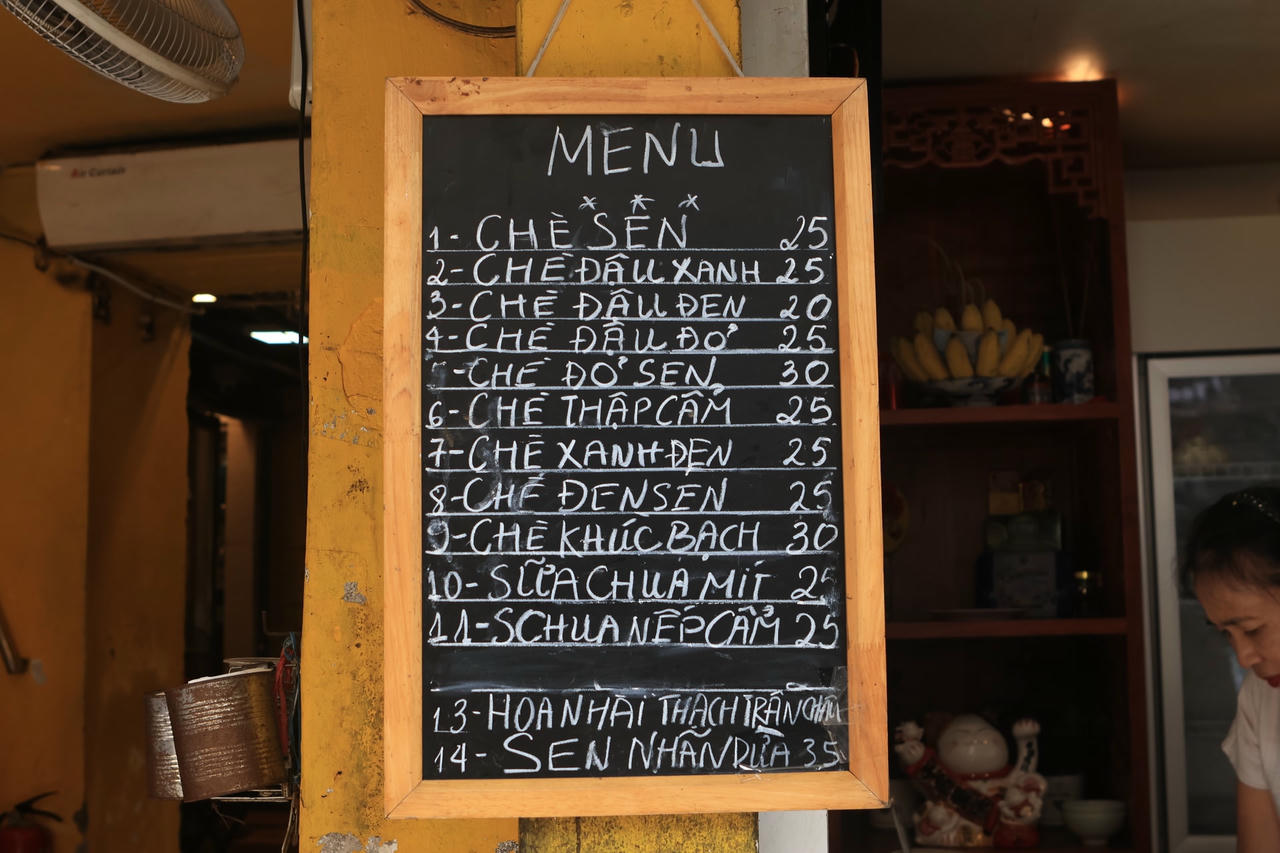 Air Curtain
MENU
***
1- CHÈ SEN 25
2- CHÈ ĐẬU XANH 25
3- CHÈ ĐẬU ĐEN 20
4- CHÈ ĐẬU ĐỎ 25
- CHÈ ĐỎ SEN 30
6- CHÈ THẬP CẨM 25
7- CHÈ XANH ĐEN 25
8- CHÈ ĐEN SEN 25
9- CHÈ KHÚC BẠCH 30
10- SỮA CHUA MÍT 25
11- S CHUA NẾP CẨM 25
13- HOA NHÀI THẠCH TRÂN CHÂU
14- SEN NHÃN DỪA 35